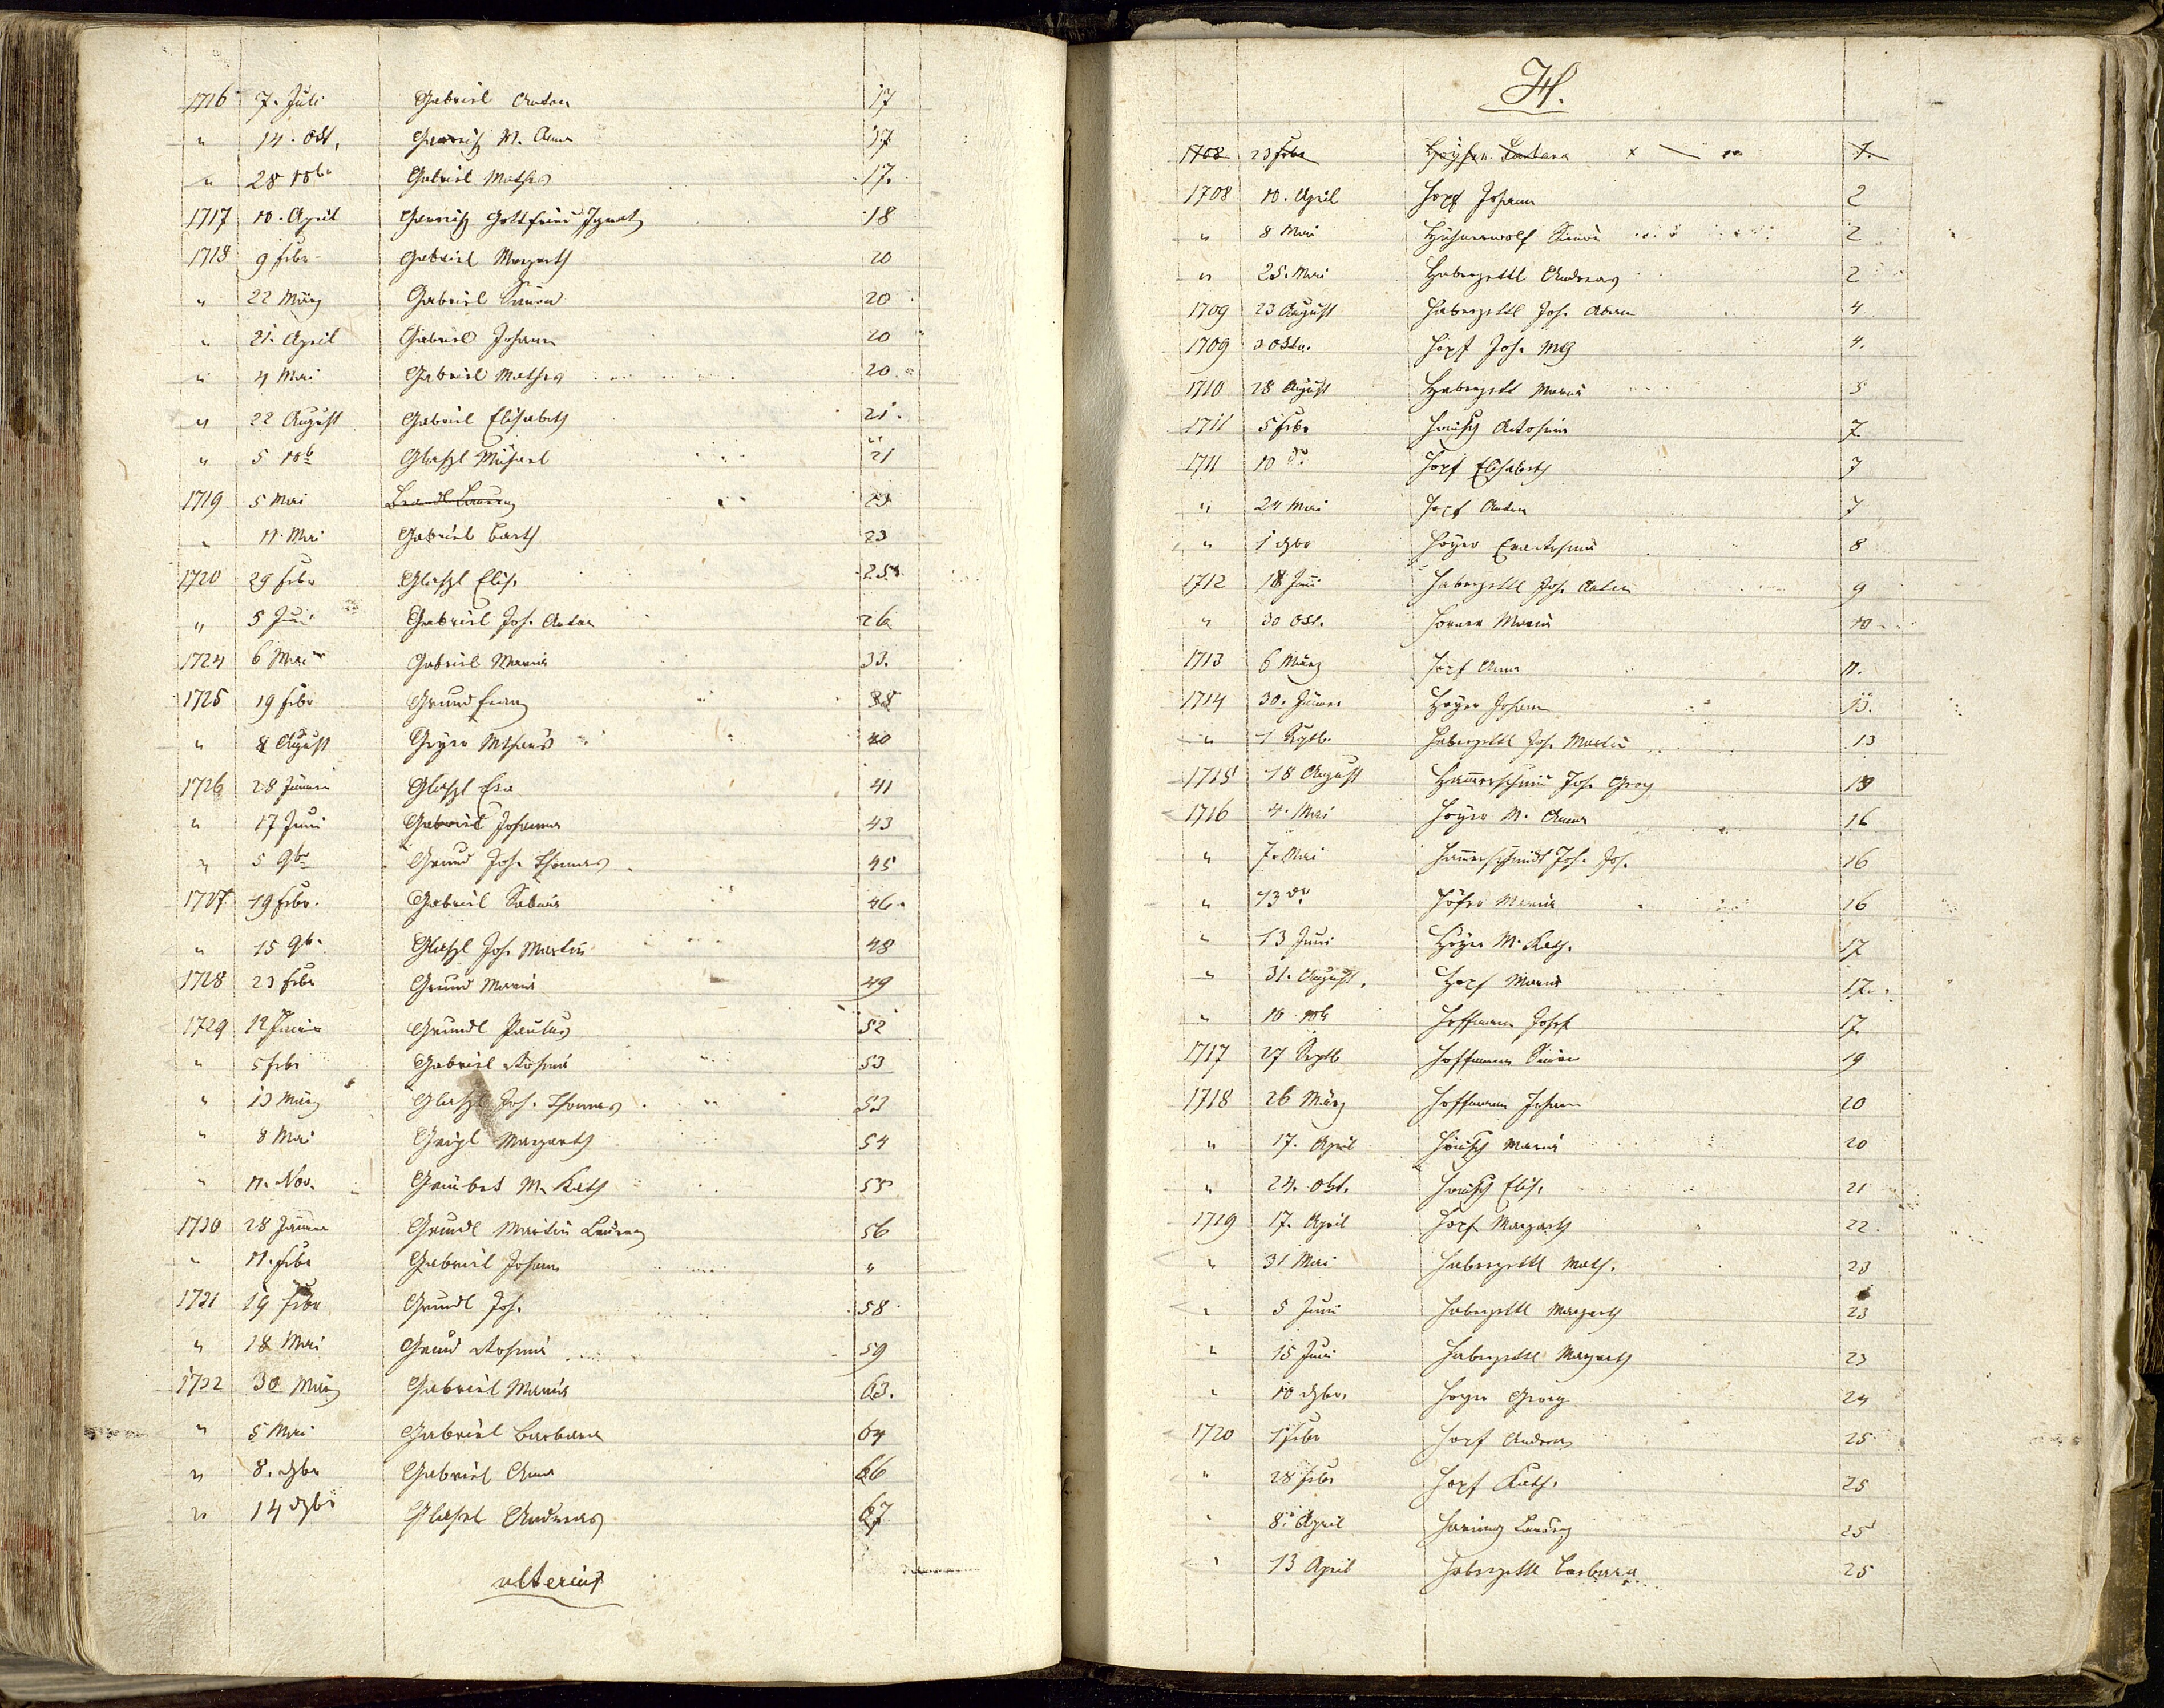 1716 7. Juli Gabriel Anton 17
" 14. Oct. M. Anna 17
" 28 10br Gabriel Mathes 17.
1717 10. April Gottfried Ignatz 18
1718 9 Febr Gabriel Margareth 20
" 22 März Gabriel Simon 20
" 21. April Gabriel Johann 20
" 4 Mai Gabriel Mathes 20
" 22 August Gabriel Elisabeth 21.
" 5 10b Glaßl Michael 21
1719 5 Mai 23
" 11. Mai Gabriel Barth 23
1720 29 Febr Glaßl Elis. 25
" 5 Juni Gabriel Joh. Anton 26
1724 6 Mai Gabriel Maria 33.
1725 19 Febr Grund Franz 38
" 8 August Geyer 40
1726 28 Jänner Glaßl Eva 41
" 17 Juni Gabriel Johanna 43
" 5 9br Grund Joh. Thomas 45
1727 19 Febr. Gabriel Sabina 46.
" 15 9br. Glaßl Joh. Martin 48
1728 23 Febr Grund Maria 49
1729 12 Jänner Grundl Paulus 52
" 5 Febr Gabriel Rosina 53
" 13 März Glaßl Joh. Thomas 53
" 8 Mai Geigl Margareth 54
" 11. Nov. M. Kath 55
1730 28 Jänner Grundl Martin Lorenz 56
" 11. Febr Gabriel Johann "
1731 19 Febr Grundl Joh. 58
" 18 Mai Grund Rosina 59
1732 30 März Gabriel Maria 63.
" 5 Mai Gabriel Barbara 64
" 8. Xbr Gabriel Anna 66
" 14 Xbr Glasel Andreas 67
ulterius
H.
1708 23 Febr 1.
1708 10. April Hopf Johann 2
" 8 Mai Hühnerwolf Simon 2
" 25. Mai Haberzettl Andreas 2
1709 23 August Haberzettl Joh. Adam 4
1709 3 Octbr. Hopf Joh. Mg 4.
1710 28 August Haberzettl Maria 5
1711 5 Febr Rosina 7
1711 10 do. Hopf Elisabeth 7
" 24 Mai Hopf Anton 7
" 1 Xbr Hoyer Eva Rosina 8
1712 18 Juni Haberzettl Joh. Anton 9
" 30 Oct. Maria 10
1713 6 März Hopf Anna 11.
1714 30. Jänner Hoyer Johann 13.
" 1 Septb. Haberzettl Joh. Martin 13
1715 18 August Hamerschmid Joh. Georg
1716 4. Mai Hoyer M. Anna 16
" 7. Mai Hamerschmidt Joh. Jos. 16
" 13 do. Höfer Maria 16
" 13 Juni Hoyer M. Kath. 17
" 31. August. Hopf Maria 17.
" 10 10b Hoffmann Josef 17
1717 27 Septb Hoffmann Simon 19
1718 26 März Hoffmann Johann 20
" 17. April Maria 20
" 24. Okt. Elis. 21
1719 17. April Hopf Margareth 22
" 31 Mai Haberzettl Math. 23
" 5 Juni Haberzettl Margareth 23
" 15 Juni Haberzettl Margareth 23
" 10 Xbr. Hoyer Georg 24
1720 1 Febr Hopf Andreas 25
" 28 Febr Hopf Kath. 25
" 8. April Lorenz 25
" 13 April Haberzettl Barbara 25